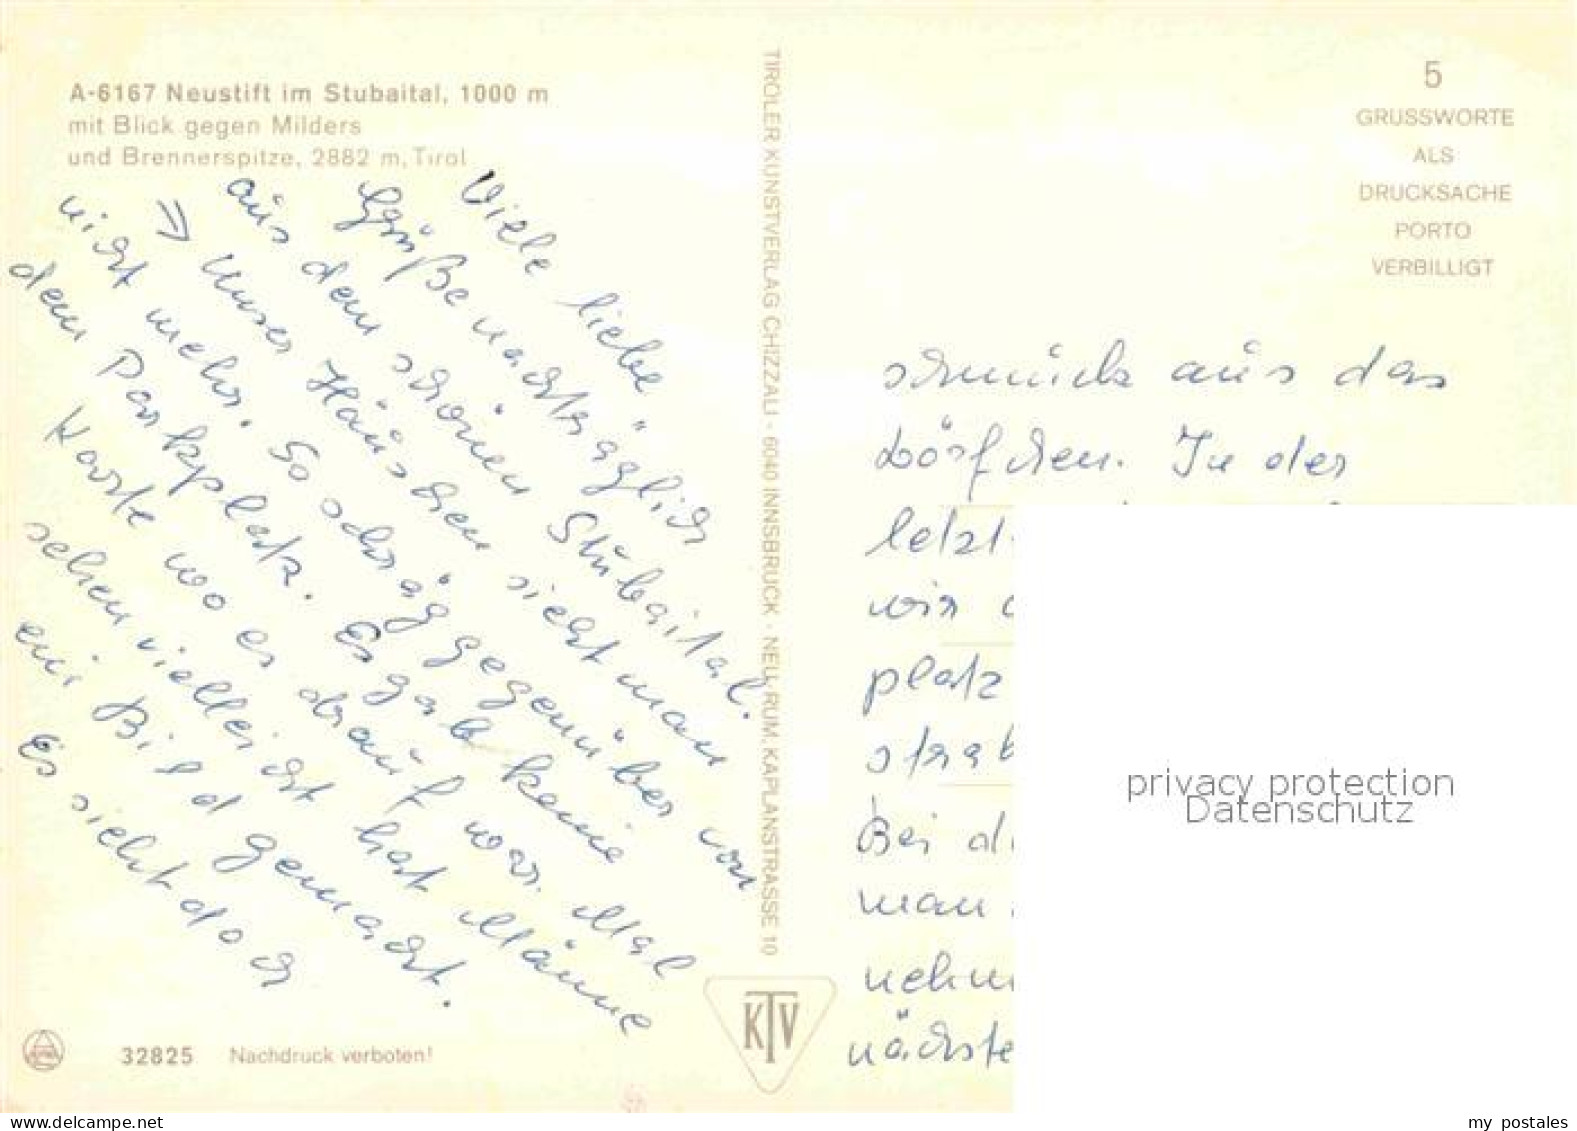 A-6167 Neustift im Stubaital, 1000 m
mit Blick gegen Milders
und Brennerspitze, 2882 m, Tirol
Viele liebe
Grüße nachträglich
aus dem schönen Stubaital.
⇒ Unser Häuschen sieht man
nicht mehr. So schräg gegenüber von
dem Parkplatz. Es gab keine
Karte wo es drauf war. Mal
sehen vielleicht hat Männe
ein Bild gemacht.
Es sieht doch
32825 Nachdruck verboten!
TIROLER KUNSTVERLAG CHIZZALI · 6040 INNSBRUCK · NEU-RUM, KAPLANSTRASSE 10
KTV
5
GRUSSWORTE
ALS
DRUCKSACHE
PORTO
VERBILLIGT
schmuck aus das
Dörfchen. In der
letzt
wir
platz
strab
Bei di
man
nehm
nächste
privacy protection
Datenschutz
www.delcampe.net
my_postales